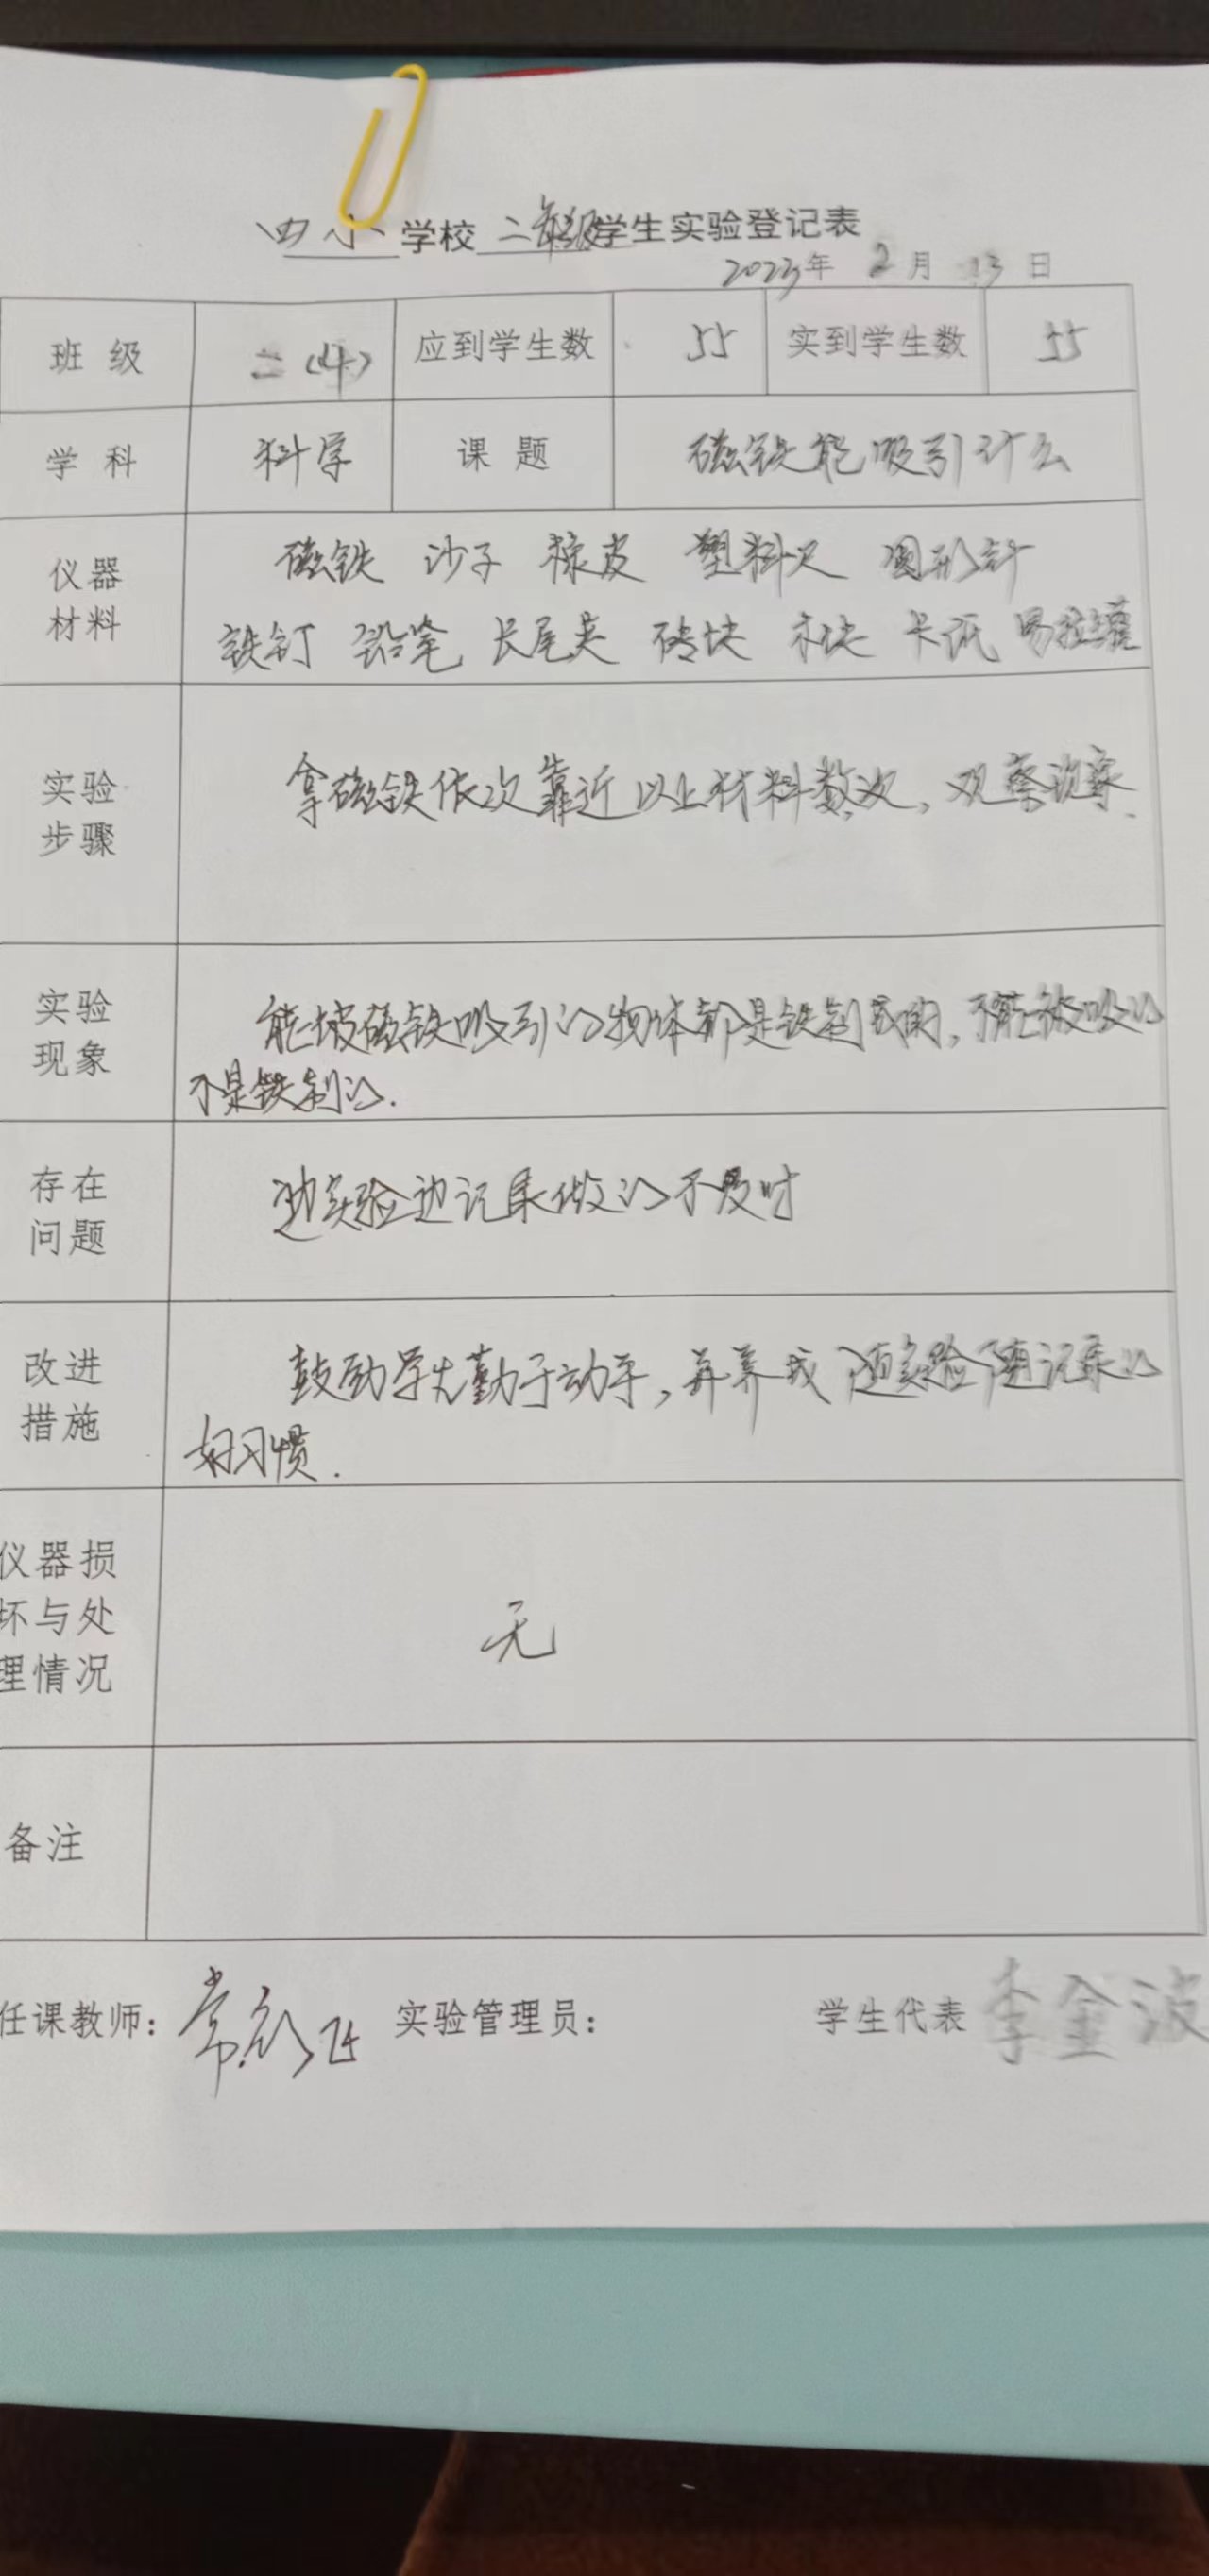 四小学校二年级学生实验登记表
2023年 2月 13日
班级 二(4) 应到学生数 55 实到学生数 55
学科 科学 课题 磁铁能吸引什么
仪器
材料
磁铁 沙子 橡皮 塑料尺 圆形针
铁钉 铅笔 长尾夹 砖块 木块 卡纸 易拉罐
实验
步骤
拿磁铁依次靠近以上材料数次,观察现象.
实验
现象
能被磁铁吸引的物体都是铁制成的,不能被吸的
不是铁制的.
存在
问题
边实验边记录做的不及时
改进
措施
鼓励学生勤于动手,并养成随实验随记录的
好习惯.
仪器损
坏与处
理情况
无
备注
任课教师: 常 实验管理员: 学生代表 李金波